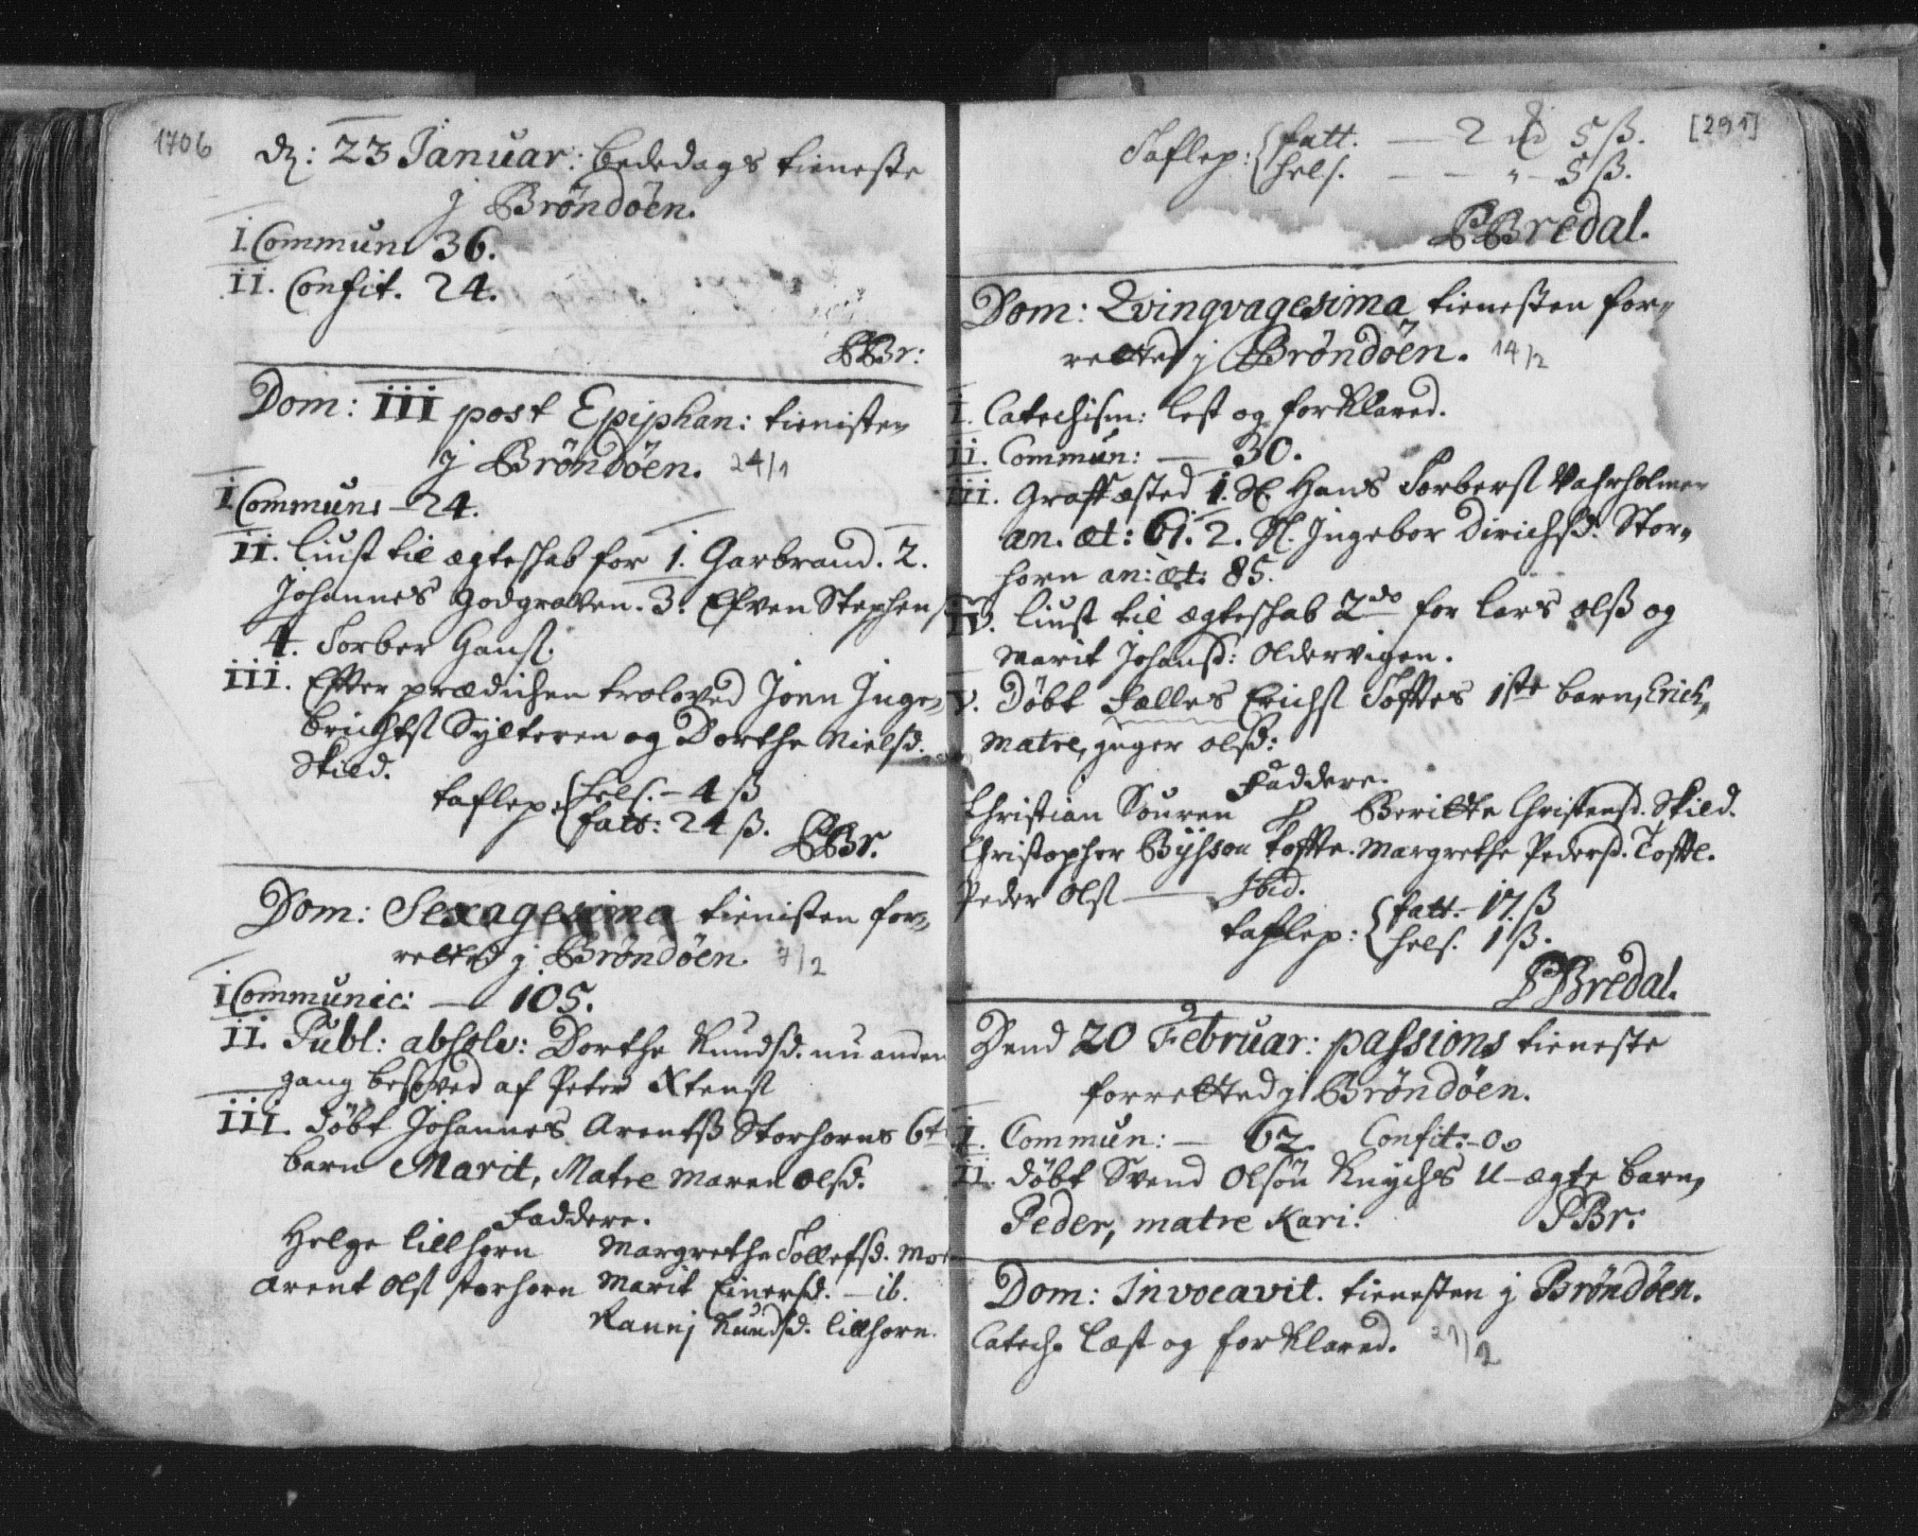 1706
dⱬ: 23 Januar: bededags tieneste
j Brøndøen.
I. Commun: 36.
II. Confit. 24.
PBr:
Dom: III post Epiphan: tienisten
j Brøndøen. 24/1
I Commun: – 24.
II. liust til ægteskab for 1. Garbrand. 2.
Johannes Godgraven. 3. Efven Stephens
4. Torber Hanss.
III. Efter prædichen troloved Joen Inge-
brichtss Sylteren og Dorthe Nielsd.
Skild.
taflep. hels. – 4 ß
fatt: 24 ß. PBr.
Dom: Sexagesima tienisten for-
retted j Brøndøen. 7/2
I Communic: — 105.
II. Publ: absolv: Dorthe Knudsd. nu anden
gang besoved af Peter Xtenss
III. døbt Johannes Arentß Storhorns 6te
barn Marit, Matre Maren olsd.
Faddere.
Helge lillhorn Margrethe Tollefsd.
Arent olss storhorn Marit Einersd. – ib.
Rannj Knudsd. lillhorn.
[291]
Taflep: fatt. — 2 5 ß.
hels. — — „ – 5 ß.
PBredal.
Dom: Qvingvagesima tienesten for-
retted j Brøndøen. 14/2
I. Catechism: lest og forklared.
II. Commun: — 30.
III. Graffæsted 1. Sl. Hans Torberss Vahrholmen
an. æt: 61. 2. Sl. Ingebor Dirichsd: Stor-
horn an: æt: 85.
IV. liust til ægteskab 2do for lars olß og
Marit Johansd: Oldervigen.
V. Døbt Falles Erichss Toftes 1ste barn, Erich,
Matre, Inger olsd:
Faddere.
Christian Souren Beritte Christensd. Skild.
Christopher Bysson Tofte. Margrethe Pedersd. Tofte.
Peder olss — Ibid.
taflep: fatt. – 17 ß
hels. 1 ß.
PBredal.
Dend 20 Februar: passions tieneste
forretted j Brøndøen.
I. Commun: — 62. Confit: – 0.
II. døbt Svend Olsøn Knychs U-ægte barn,
Peder, matre Kari: PBr:
Dom: Invocavit. tienesten j Brøndøen.
Catech. læst og forklared. 21/2